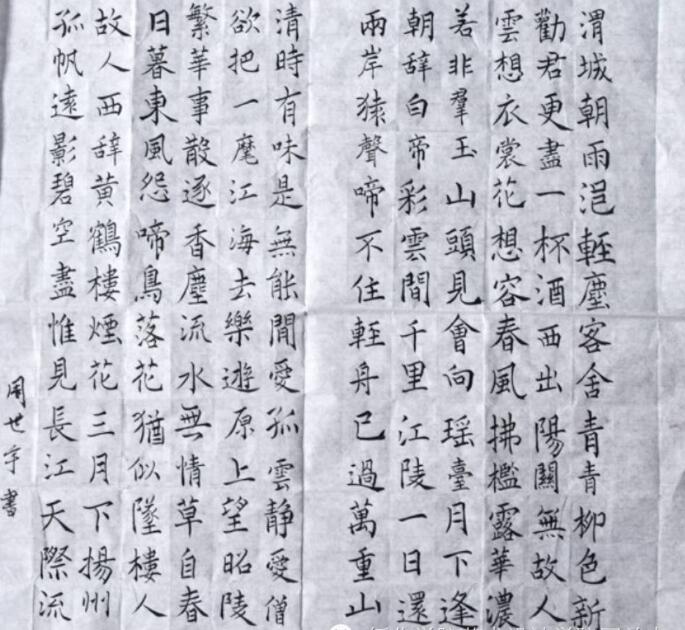 渭城朝雨浥輊塵客舍青青柳色新
勸君更盡一杯酒西出陽關無故人
雲想衣裳花想容春風拂檻露華濃
若非羣玉山頭見會向瑶臺月下逢
朝辞白帝彩雲間千里江陵一日還
兩岸猿聲啼不住輊舟已過萬重山
清時有味是無能閒愛孤雲静愛僧
欲把一麾江海去樂遊原上望昭陵
繁華事散逐香塵流水無情草自春
日暮東風怨啼鳥落花猶似墜樓人
故人西辞黄鶴樓煙花三月下揚州
孤帆遠影碧空盡惟見長江天際流
周世宇書